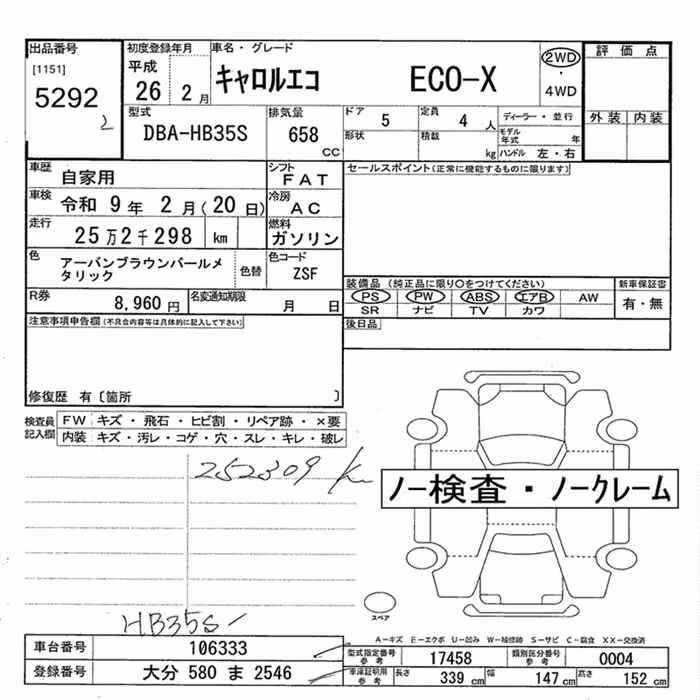 出品番号
[1151]
5292
2
初度登録年月
平成
26 2月
車名・グレード
キャロルエコ ECO-X
2WD
・
4WD
評価点
外装 内装
型式
DBA-HB35S
排気量
658
CC
ドア 5
定員 4 人
形状
積載 kg
ディーラー・並行
モデル年式 年
ハンドル 左・右
車歴 自家用
シフト FAT
車検 令和 9年 2月(20日)
冷房 AC
走行 25万2千298 km
燃料 ガソリン
色 アーバンブラウンパールメ
タリック
色替
色コード
ZSF
R券 8,960円
名変通知期限 月 日
セールスポイント(正常に機能するものに限ります)
装備品 (純正品に限り○をつけてください)
PS PW ABS エアB AW
SR ナビ TV カワ
新車保証書
有・無
後日品
注意事項申告欄(不具合内容等は具体的に記入して下さい)
修復歴 有〔箇所 〕
検査員
記入欄
FW キズ・飛石・ヒビ割・リペア跡・×要
内装 キズ・汚レ・コゲ・穴・スレ・キレ・破レ
252309 Km
ノー検査・ノークレーム
スペア
HB35S-
A-キズ E-エクボ U-凹み W-補修跡 S-サビ C-腐食 XX-交換済
車台番号 106333
登録番号 大分 580 ま 2546
型式指定番号
参考
17458
類別区分番号
参考
0004
車庫証明用
参考
長さ 339 cm
幅 147 cm
高さ 152 cm